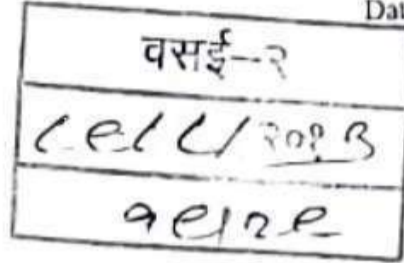 Dat
वसई--२
८९८८/२०१३
१९/२९